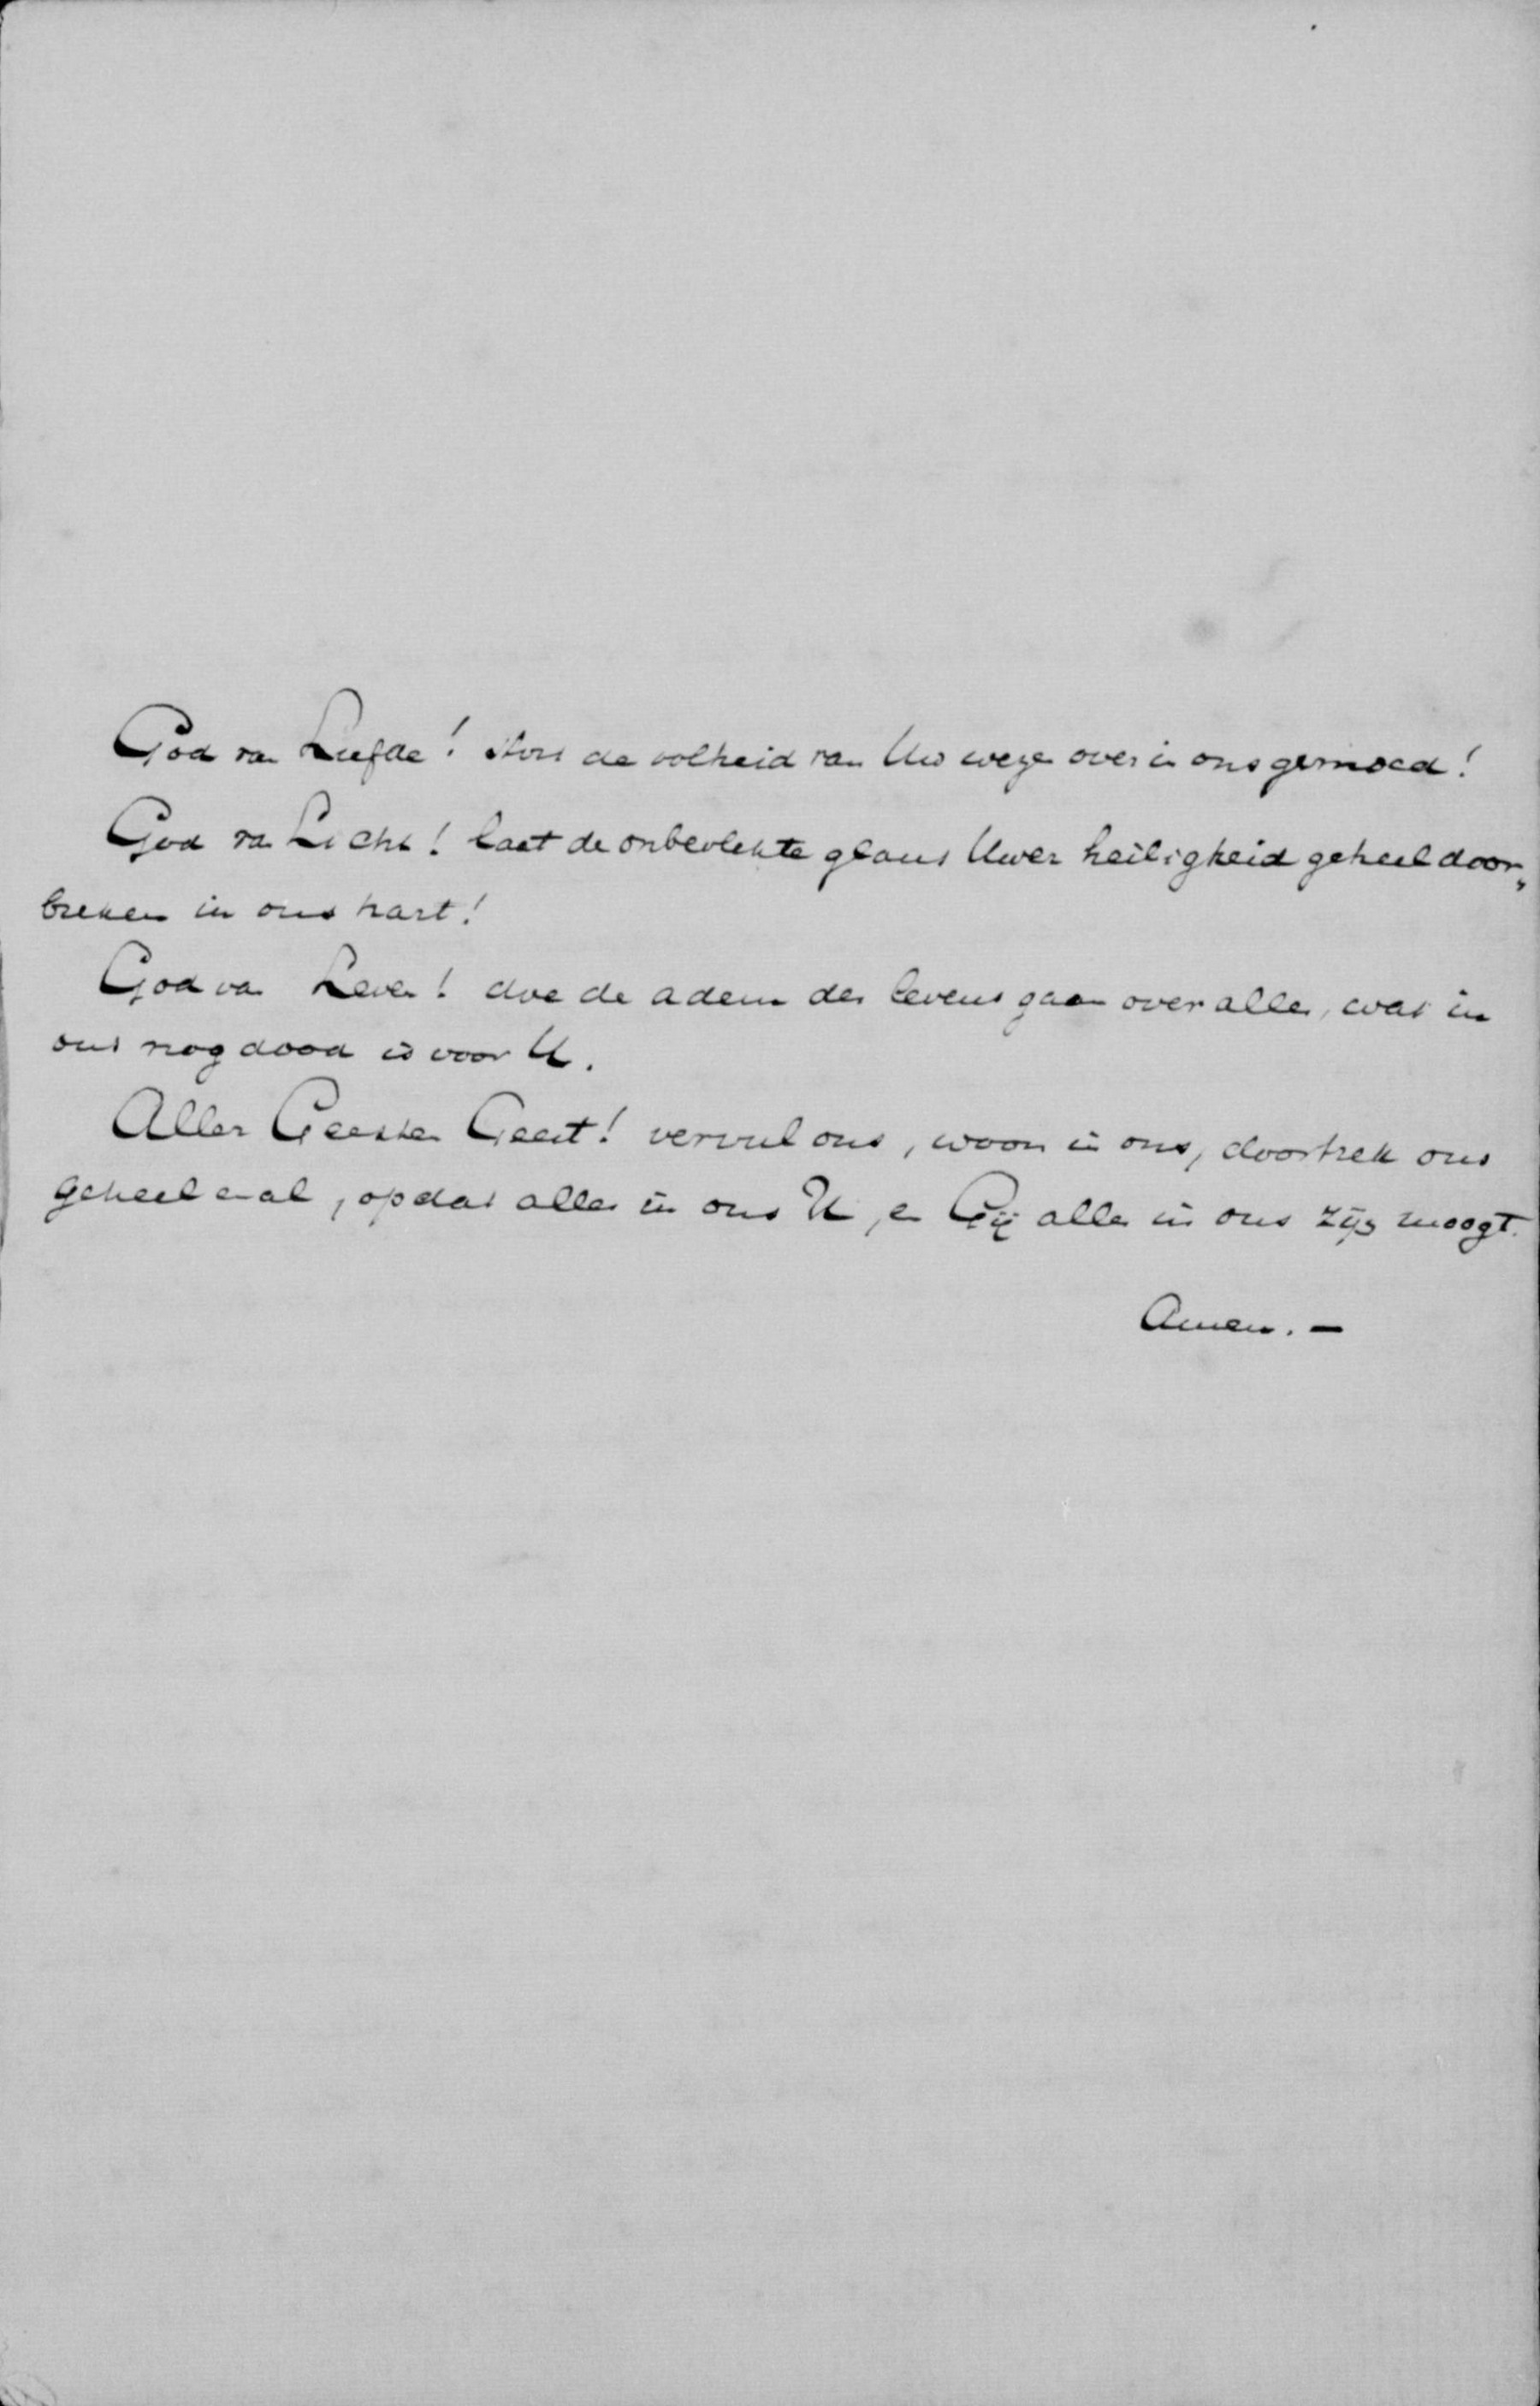 God van Liefde! stort de volheid van Uw wezen over in ons gemoed!
God van Licht! laat de onbevlekte glans Uwer heiligheid geheel door„
breken in ons hart!
God van Leven! doe de adem des levens gaan over alles, wat in
ons nog dood is voor U.
Aller Geesten Geest! vervul ons, woon in ons, doortrek ons
geheel en al, opdat alles in ons U, en Gij alles in ons zijn moogt.
Amen. —